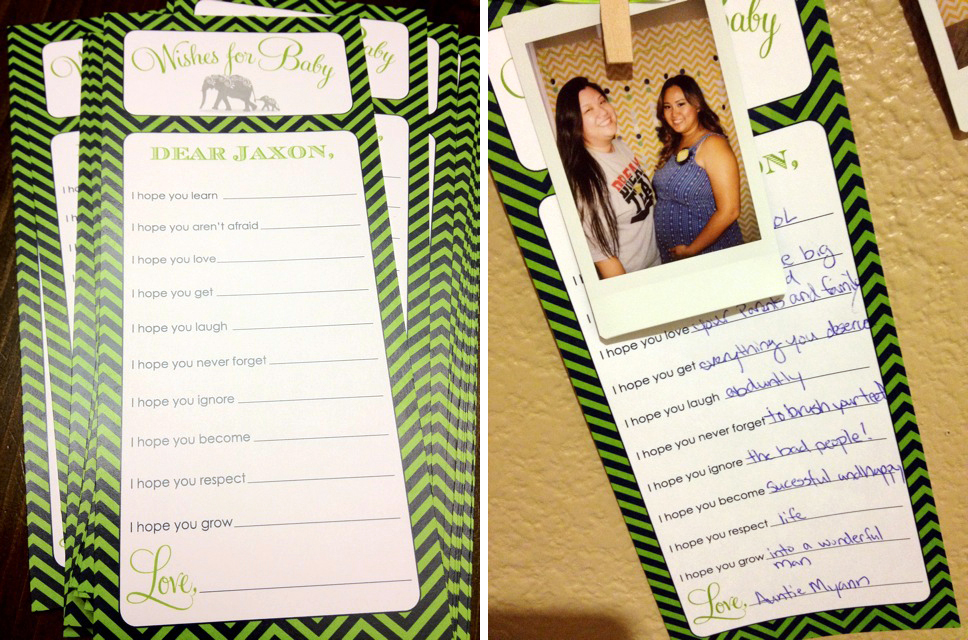 Wishes for Baby
DEAR JAXON,
I hope you learn
I hope you aren't afraid
I hope you love
I hope you get
I hope you laugh
I hope you never forget
I hope you ignore
I hope you become
I hope you respect
I hope you grow
Love,
Baby
ON,
OL
e big
d
I hope you love your Parents and family
I hope you get everything you deserve
I hope you laugh abduntly
I hope you never forget to brush your teeth
I hope you ignore the bad people!
I hope you become sucessful and happy
I hope you respect life
I hope you grow into a wunderful
man
Love, Auntie Myann